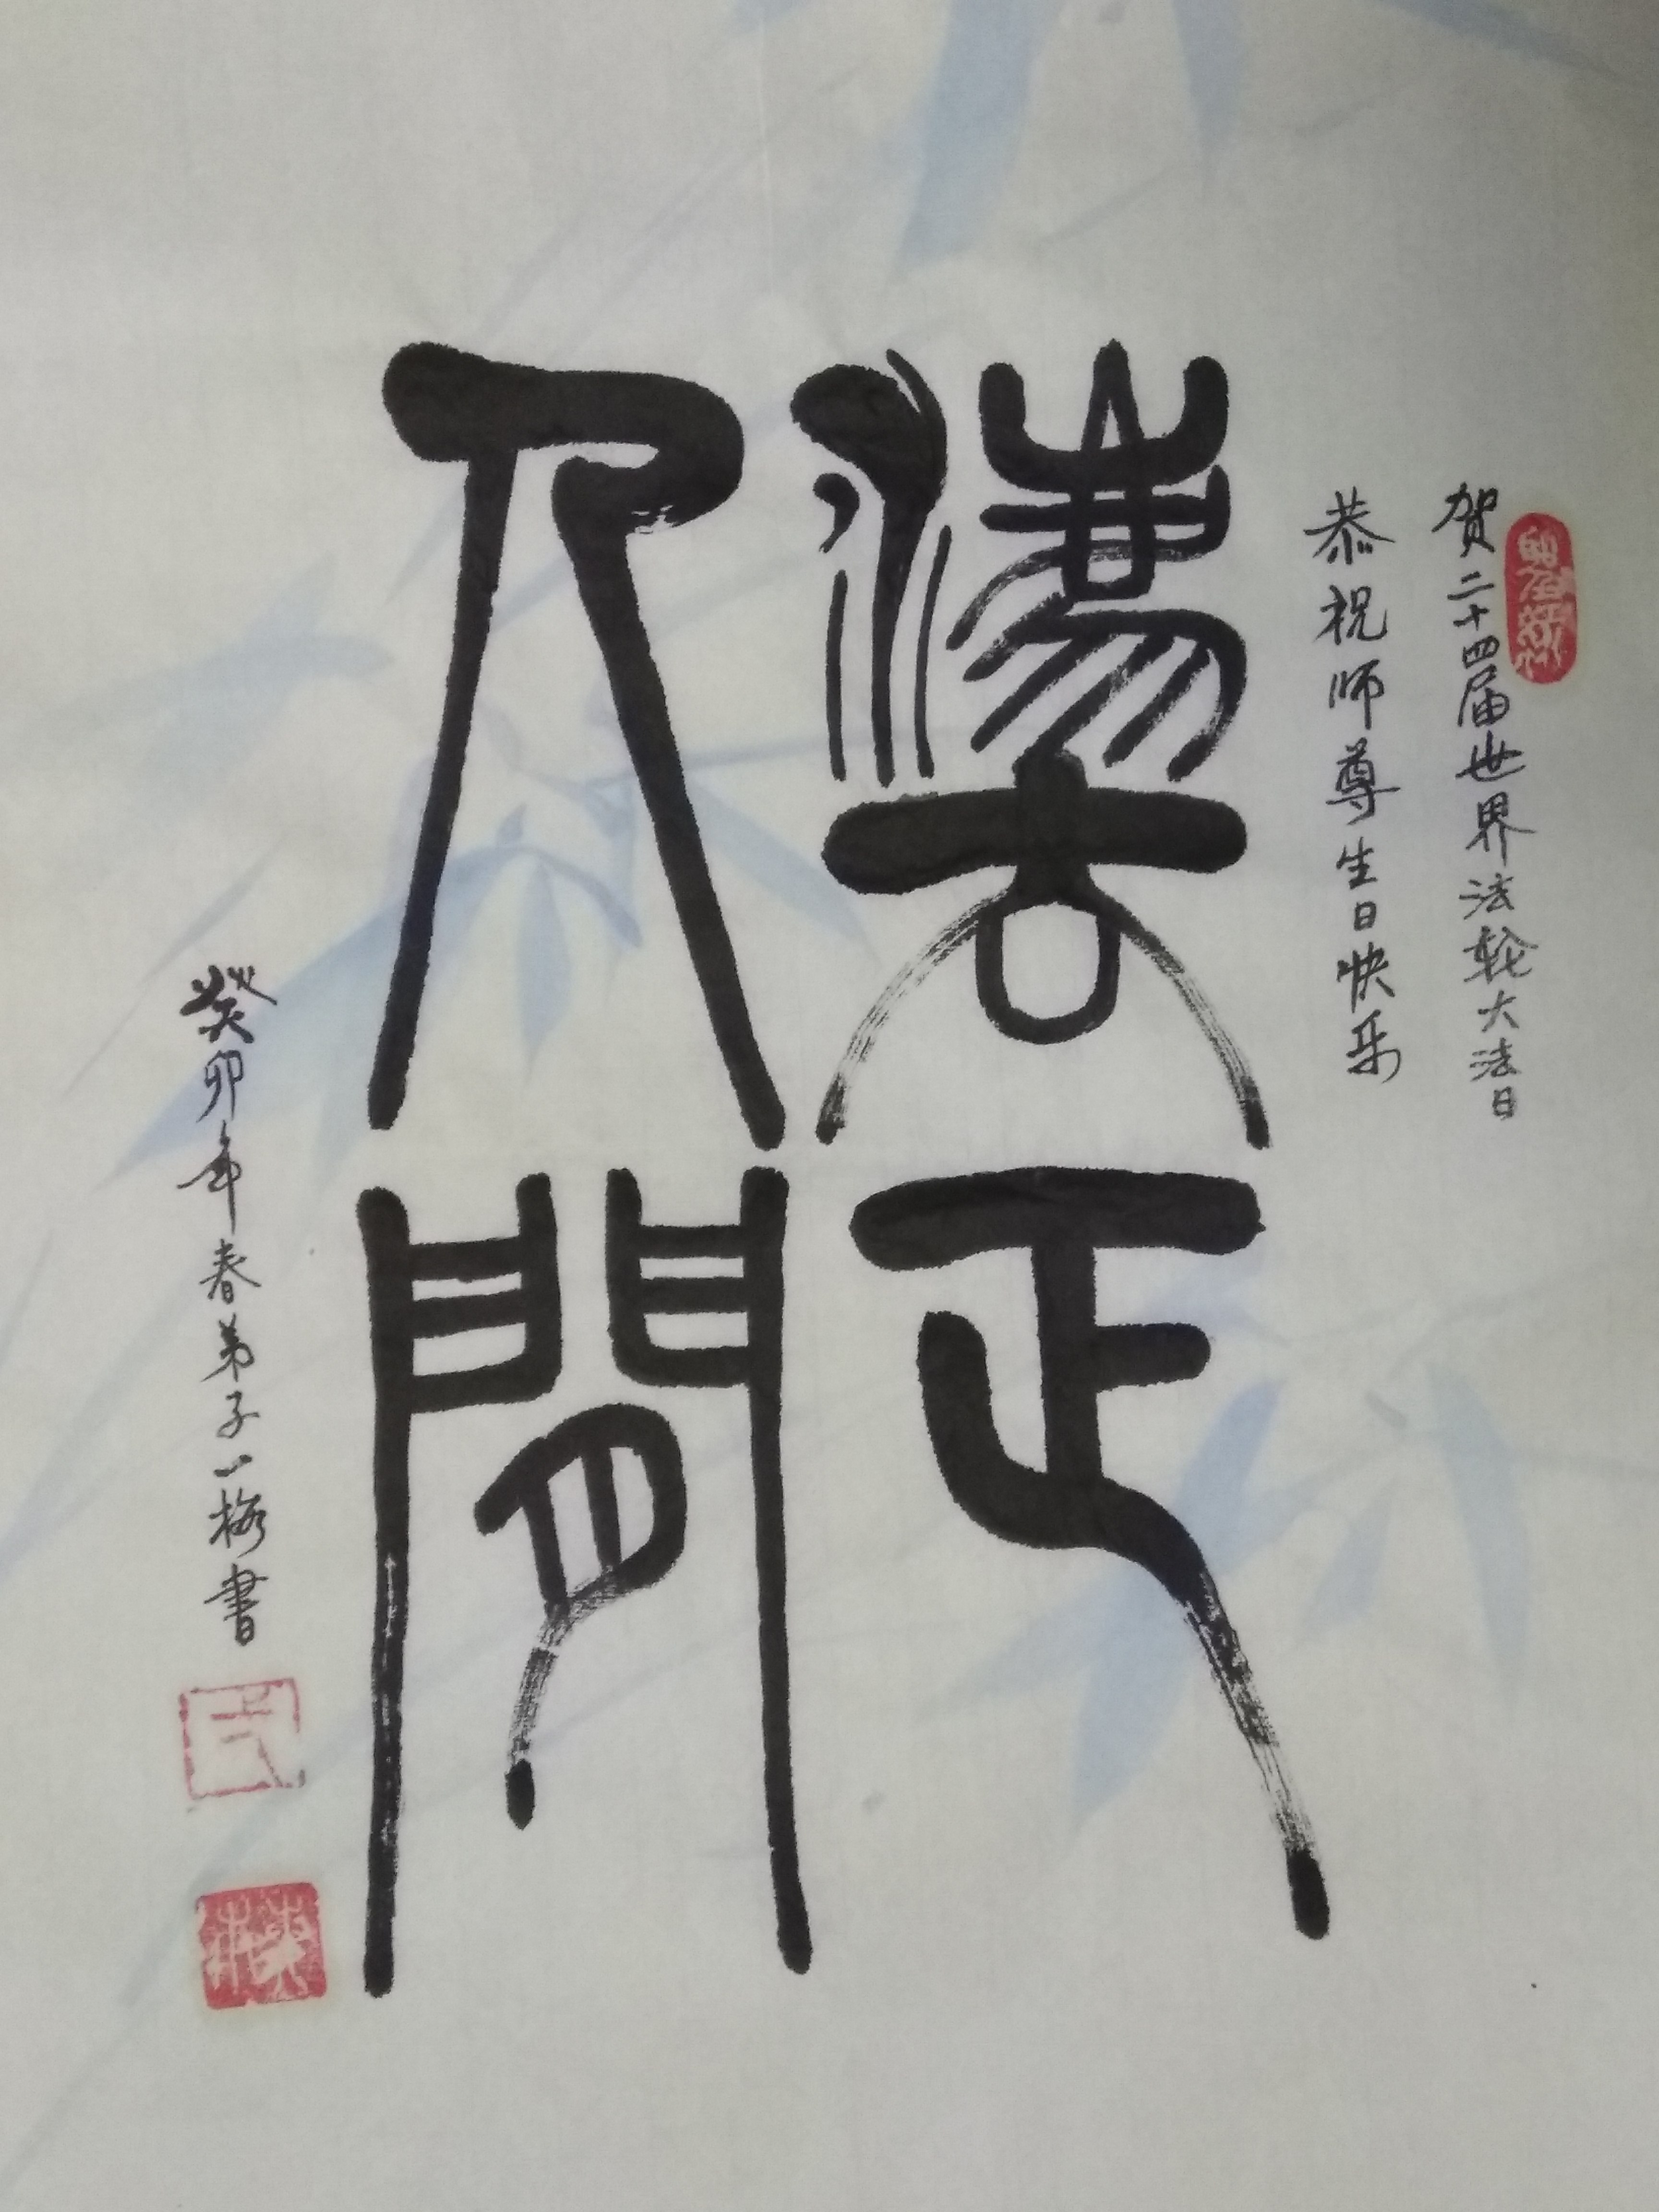 贺二十四届世界法轮大法日
恭祝师尊生日快乐
灋正
人間
癸卯年春弟子一梅書